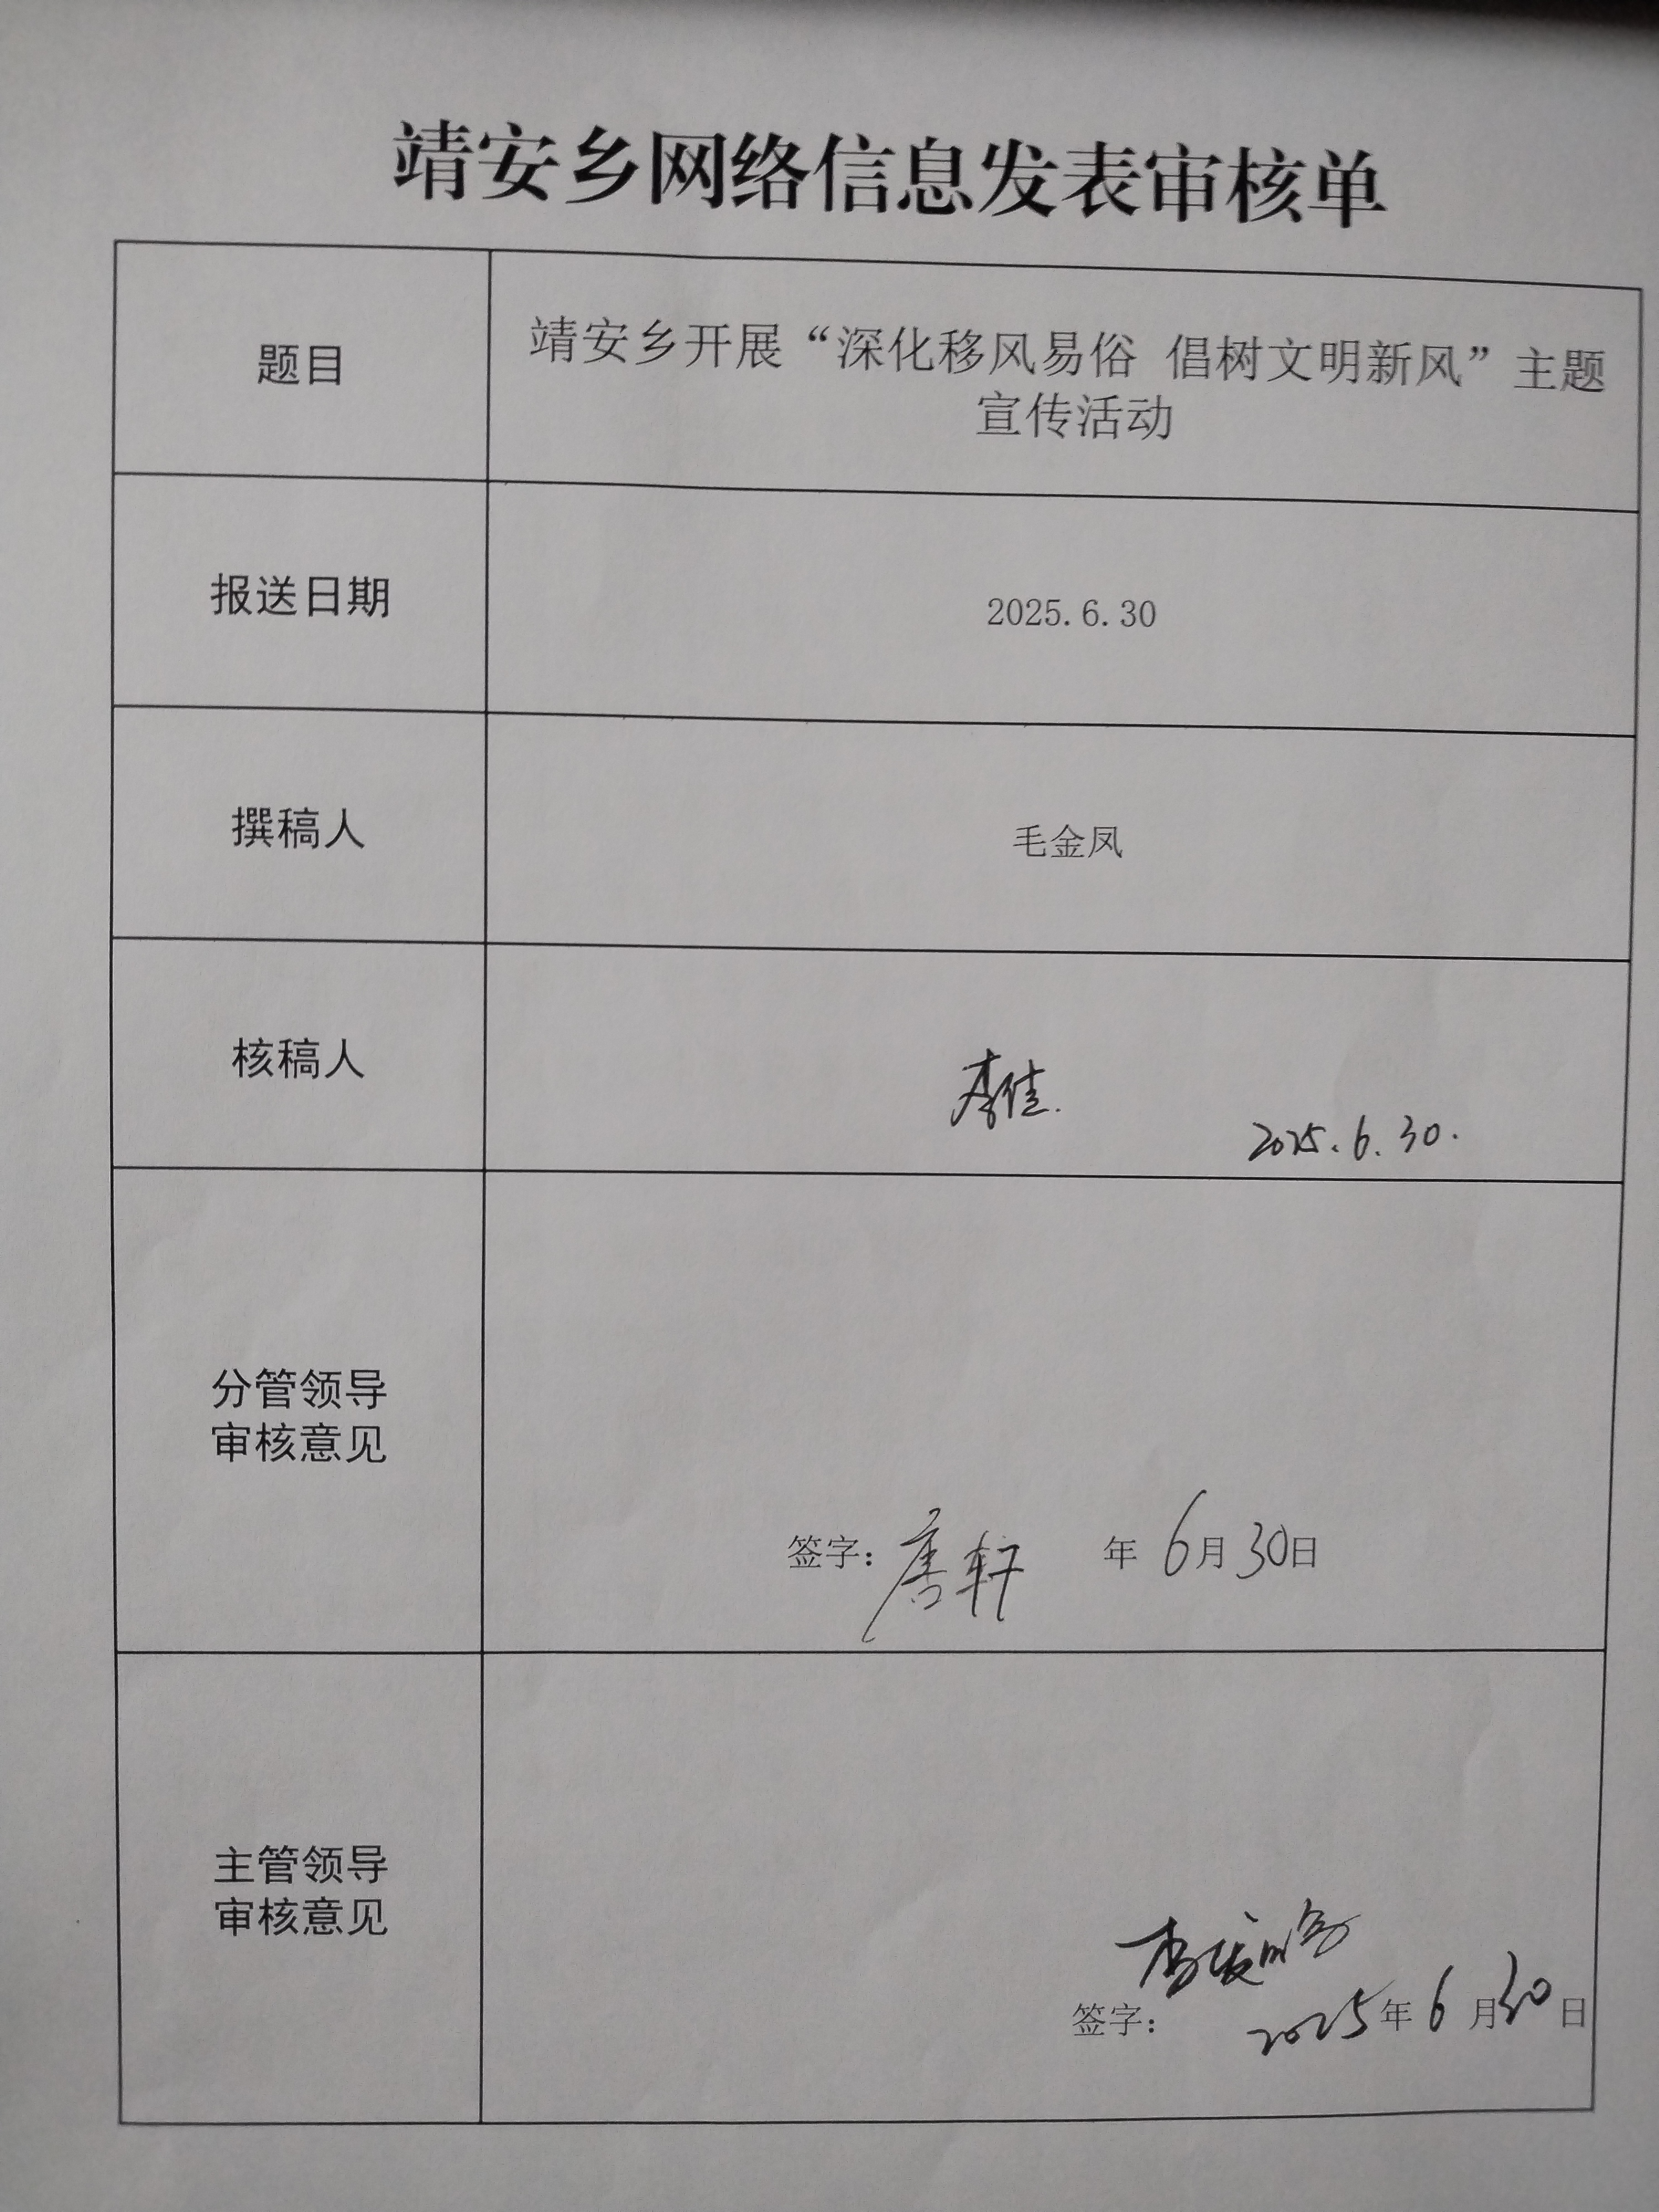 靖安乡网络信息发表审核单
题目
靖安乡开展“深化移风易俗 倡树文明新风”主题
宣传活动
报送日期
2025.6.30
撰稿人
毛金凤
核稿人
李佳.
2025.6.30.
分管领导
审核意见
签字：唐轩 年 6月30日
主管领导
审核意见
签字： 2025年6月30日